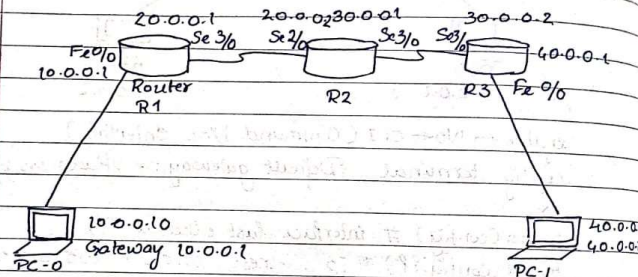 20.0.0.1
20.0.0.2
30.0.0.1
30.0.0.2
Fe0/0
10.0.0.1
Se3/0
Se2/0
Se3/0
Se3/0
40.0.0.1
Router
R1
R2
R3
Fe0/0
10.0.0.10
Gateway 10.0.0.1
PC-0
40.0.0
40.0.0
PC-1